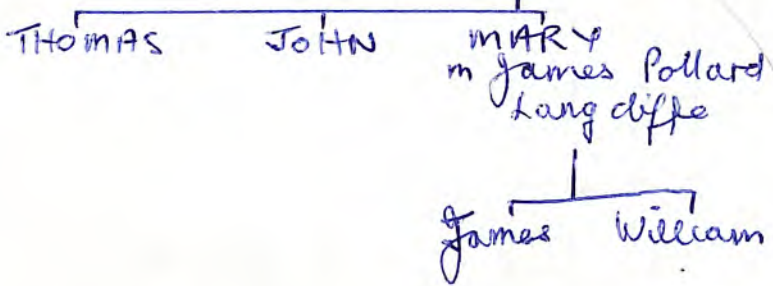 THOMAS JOHN MARY
m James Pollard
Langcliffe
James William